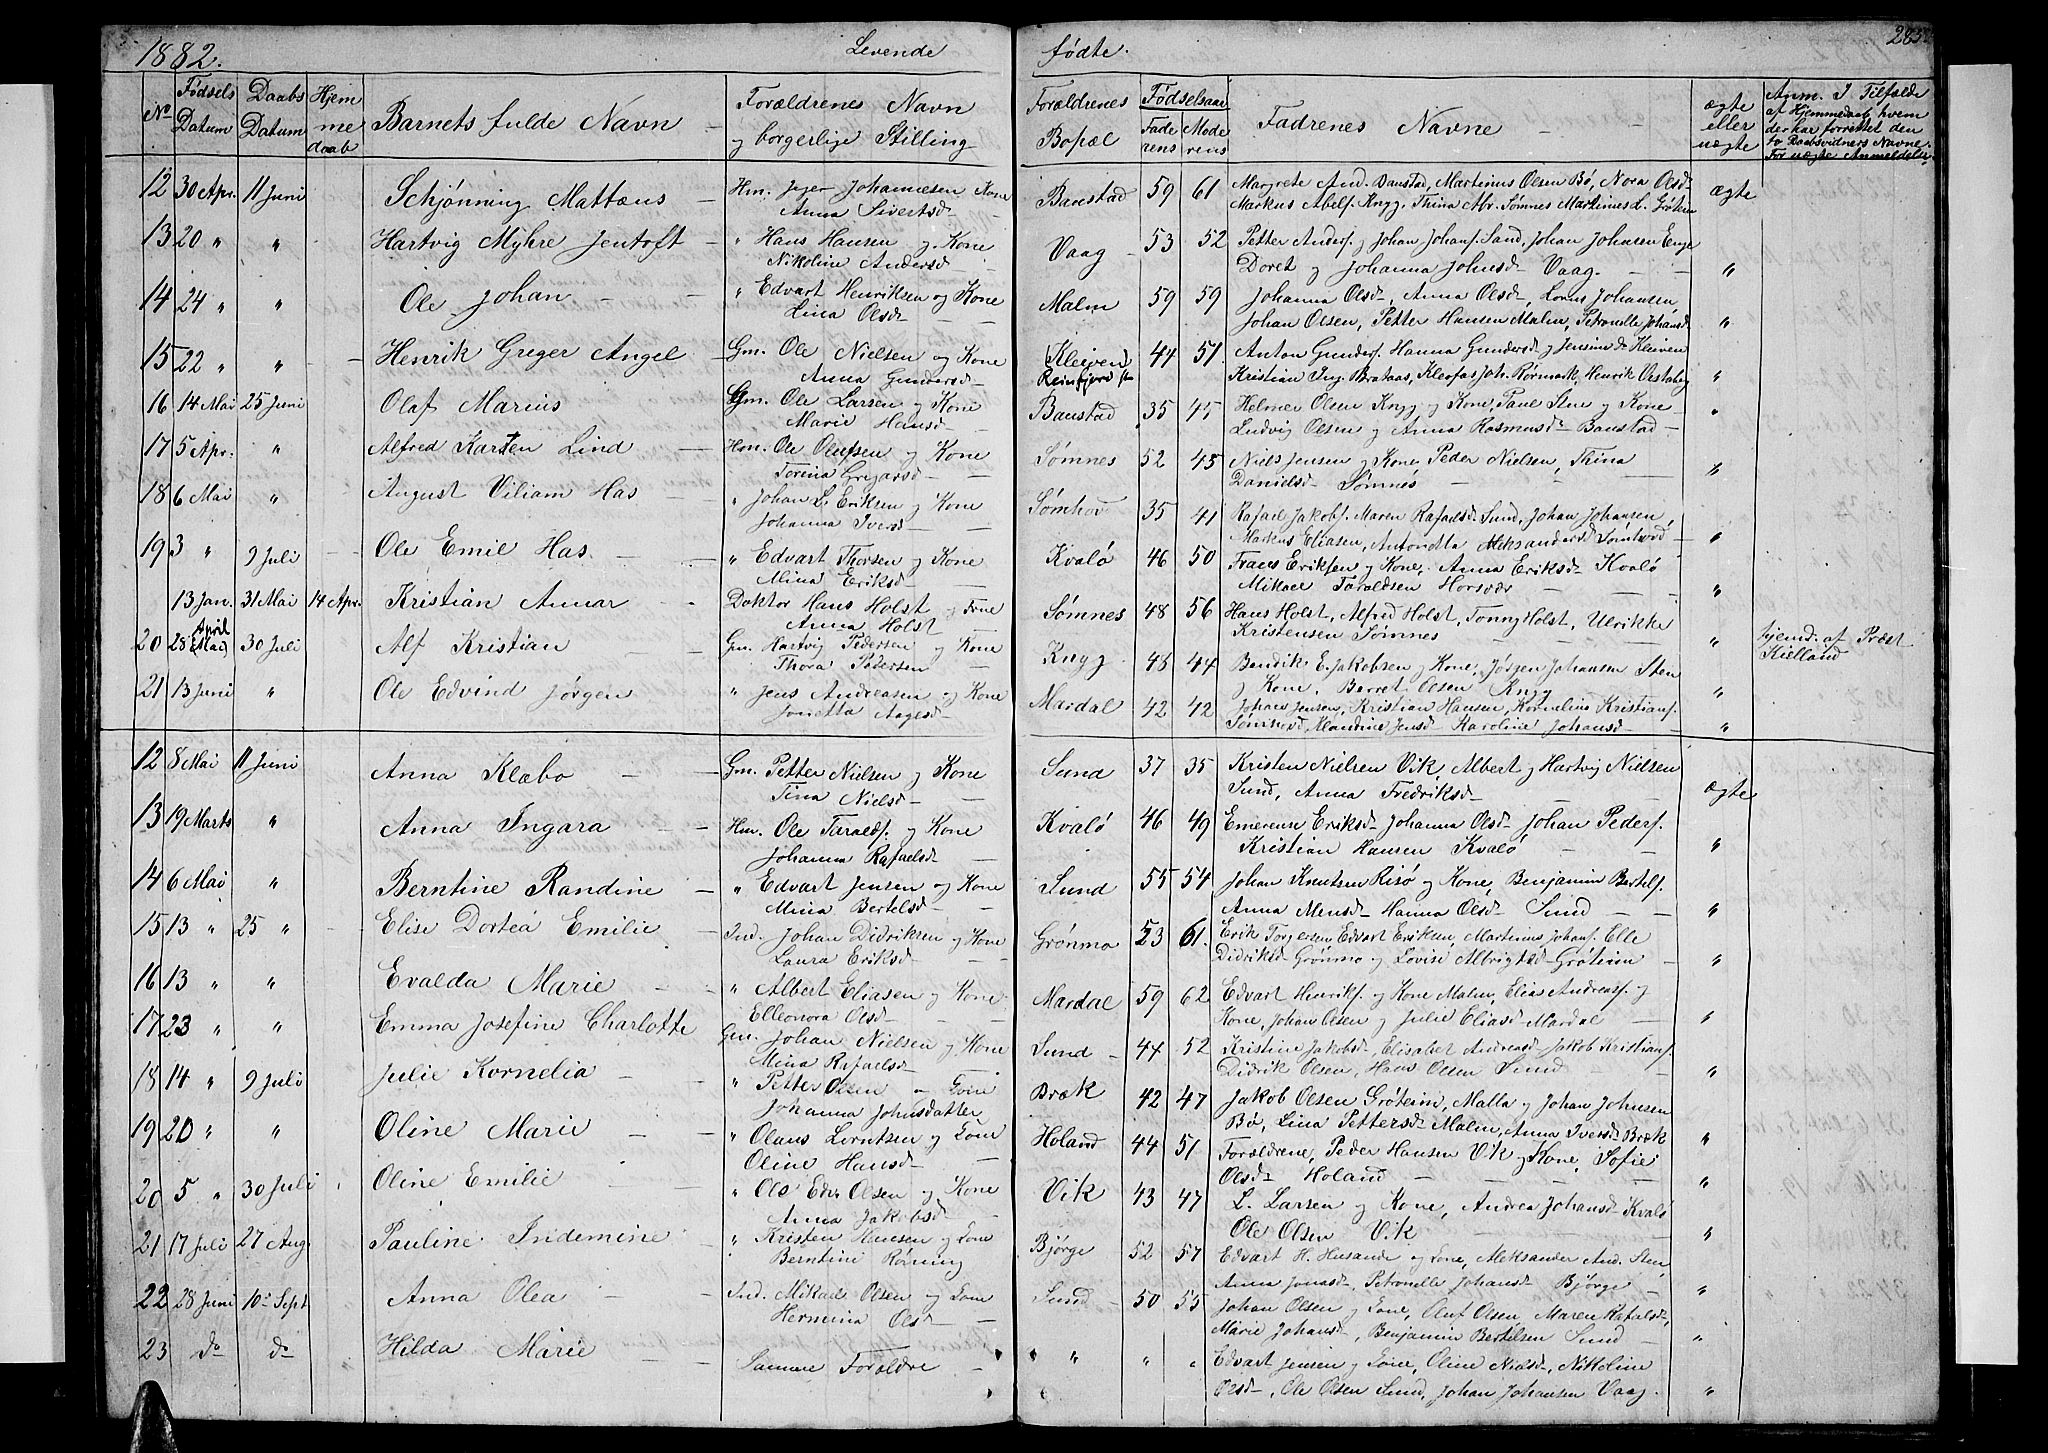 1882.
Levende
fødte.
No
Fødsels Datum
Daabs Datum
Hjem me daab
Barnets fulde Navn
Forældrenes Navn
og borgerlige Stilling
Forældrenes Bopæl
Fødselsaar
Fade rens
Mode rens
Fadrenes Navne
ægte eller uægte
Anm. I Tilfælde
af Hjemmedaab hvem
der har forrettet den
12 30 Apr. 11 Juni Schjønning Mattæus Hm. Johannesen Kone
Anna Sivertsd Banestad 59 61 Margrete And. Banstad, Martinus Olsen Bø, Nora Olsd
Markus Abelf. Knyg, Trina Abr. Sømnes ægte
13 20 " " Hartvig Myhre Jentoft " Hans Hansen og Kone
Nikoline Andersd Vaag 53 52 Petter Andersf. og Johan Johansf. Sund, Johan Johnsen
Doret og Johanna Johnsd Vaag "
14 24 " " Ole Johan " Edvart Henriksen og Kone
Lina Olsd Malm 59 59 Johanna Olsd, Anna Olsd, Johansen
Johan Olsen, Petter Hansen Malm, Petronelle Johansd "
15 22 " " Henrik Greger Angel Gm. Ole Nielsen og Kone
Anna Gundersd Kleiven 44 51 Anton Gundersf. Hanna Gundersd og Kleiven
Kristian Ing. Brataas, Kleofas Joh. Rørmark, Henrik "
16 14 Mai 25 Juni Olaf Marius Gm. Ole Larsen og Kone
Marie Hansd Banstad 35 45 Helmer Olsen Knyg og Kone, Paul Sten og Kone
Ludvig Olsen og Anna Rasmusd Banstad "
17 5 Apr. " Alfred Karsten Lind Hm. Ole Olufsen og Kone
Torina Gregarsd Sømnes 52 45 Niels Jensen og Kone, Peder Nielsen, Trina
Danielsd Sømnes "
18 6 Mai " August Viliam Has " Johan L. Eriksen og Kone
Johanna Iversd Sømhov 35 41 Rafael Jakobsf. Maren Rafaelsd Sund, Johan Johansen,
Markus Eliasen, Antonetta "
19 3 " 9 Juli Ole Emil Has " Edvart Thorsen og Kone
Mina Eriksd Kvalø 46 50 Frans Eriksen og Kone, Anna Eriksd Kvalø
Mikael Taraldsen Horsvær "
13 Jan. 31 Mai 14 Apr. Kristian Annar Doktor Hans Holst og Frue
Anna Holst Sømnes 48 56 Hans Holst, Alfred Holst, Tonny Holst, Ulrikke
Kristensen Sømnes " Hjemd. af Præst
Kielland
20 28 April 30 Juli Alf Kristian Gm. Hartvig Pedersen og Kone
Thora Petersen Knyg 48 44 Bendik E. Jakobsen og Kone, Jørgen Johansen Sten
og Kone, Berret Olsen Knyg "
21 13 Juni " Ole Edvind Jørgen " Jens Andreasen og Kone
Jonetta Aagesd Mardal 42 42 Johans Jensen, Kristian Hansen, Kornelius Kristiansf.
Klaudine Jensd Karoline Johansd "
12 8 Mai 11 Juni Anna Klabo Gm. Petter Nielsen og Kone
Tina Nielsd Sund 37 35 Kristen Nielsen Vik, Albert og Hartvig Nielsen
Sund, Anna Fredriksd ægte
13 19 Marts " Anna Ingara Hm. Ole Taraldsf. og Kone
Johanna Rafaelsd Kvalø 46 49 Emerense Eriksd Johanna Olsd Johan Pedersf.
Kristian Hansen Kvalø "
14 6 Mai " Berntine Randine " Edvart Jensen og Kone
Mina Bertelsd Sund 55 54 Johan Knutsen Risø og Kone, Benjamin Bertelsf.
Anna Mensd Hanna Olsd Sund "
15 13 " 25 " Elise Dortea Emilie Ind. Johan Didriksen og Kone
Laura Eriksd Grønmo 53 61. Erik Torgersen Edvart Eriksen, Martinus Johansf. Elle
Didriksd Grønmo og Lovise Albrigtsd Grøteim "
16 13 " " Evalda Marie " Albert Eliasen og Kone
Elleonora Olsd Mardal 59 62 Edvart Henriksf. og Kone Malm, Elias Andreasf. og
Kone, Johan Olsen og Julie Eliasd Mardal "
17 23 " " Emma Josefine Charlotte Gm. Johan Nielsen og Kone
Mina Rafaelsd Sund 44 52 Kristine Jakobsd, Elisabet Andreasd Jakob Kristiansf.
Didrik Olsen, Hans Olsen Sund "
18 14 " 9 Juli Julie Kornelia " Petter Olsen og Kone
Johanna Johnsdatter Bræk 42 47 Jakob Olsen Grøteim, Malla og Johan Johnsen
Bø, Lina Pettersd Malm, Anna Iversd Bræk "
19 20 " " Oline Marie " Olaus Lorntsen og Kone
Oline Hansd Holand 44 51 Forældrene, Peder Hansen Vik og Kone, Sofie
Olsd Holand "
20 5 " 30 Juli Oline Emilie " Ole Edv. Olsen og Kone
Anna Jakobsd Vik 43 47 L. Larsen og Kone, Andrea Johansd Kvalø
Ole Olsen Vik "
21 17 Juli 27 Aug. Pauline Indemine " Kristen og Kone
Berntine Rørning Bjørge 52 57 Edvart H. Husande og Kone, Aleksander And. Sten,
Anna Jonasd Petronelle Johansd Bjørge "
22 28 Juni 10 Sept. Anna Olea Ind. Mikael Olsen og Kone
Hermina Olsd Sund 50 55 Johan Olsen og Kone, Oluf Olsen, Maren Rafaelsd,
Marie Johansd, Benjamin Bertelsen Sund "
23 do do Hilda Marie Samme Forældre " " " Edvart Jensen og Kone, Oline Nielsd, Nikoline
Olsd, Ole Olsen Sund, Johan Johansen Vaag. "